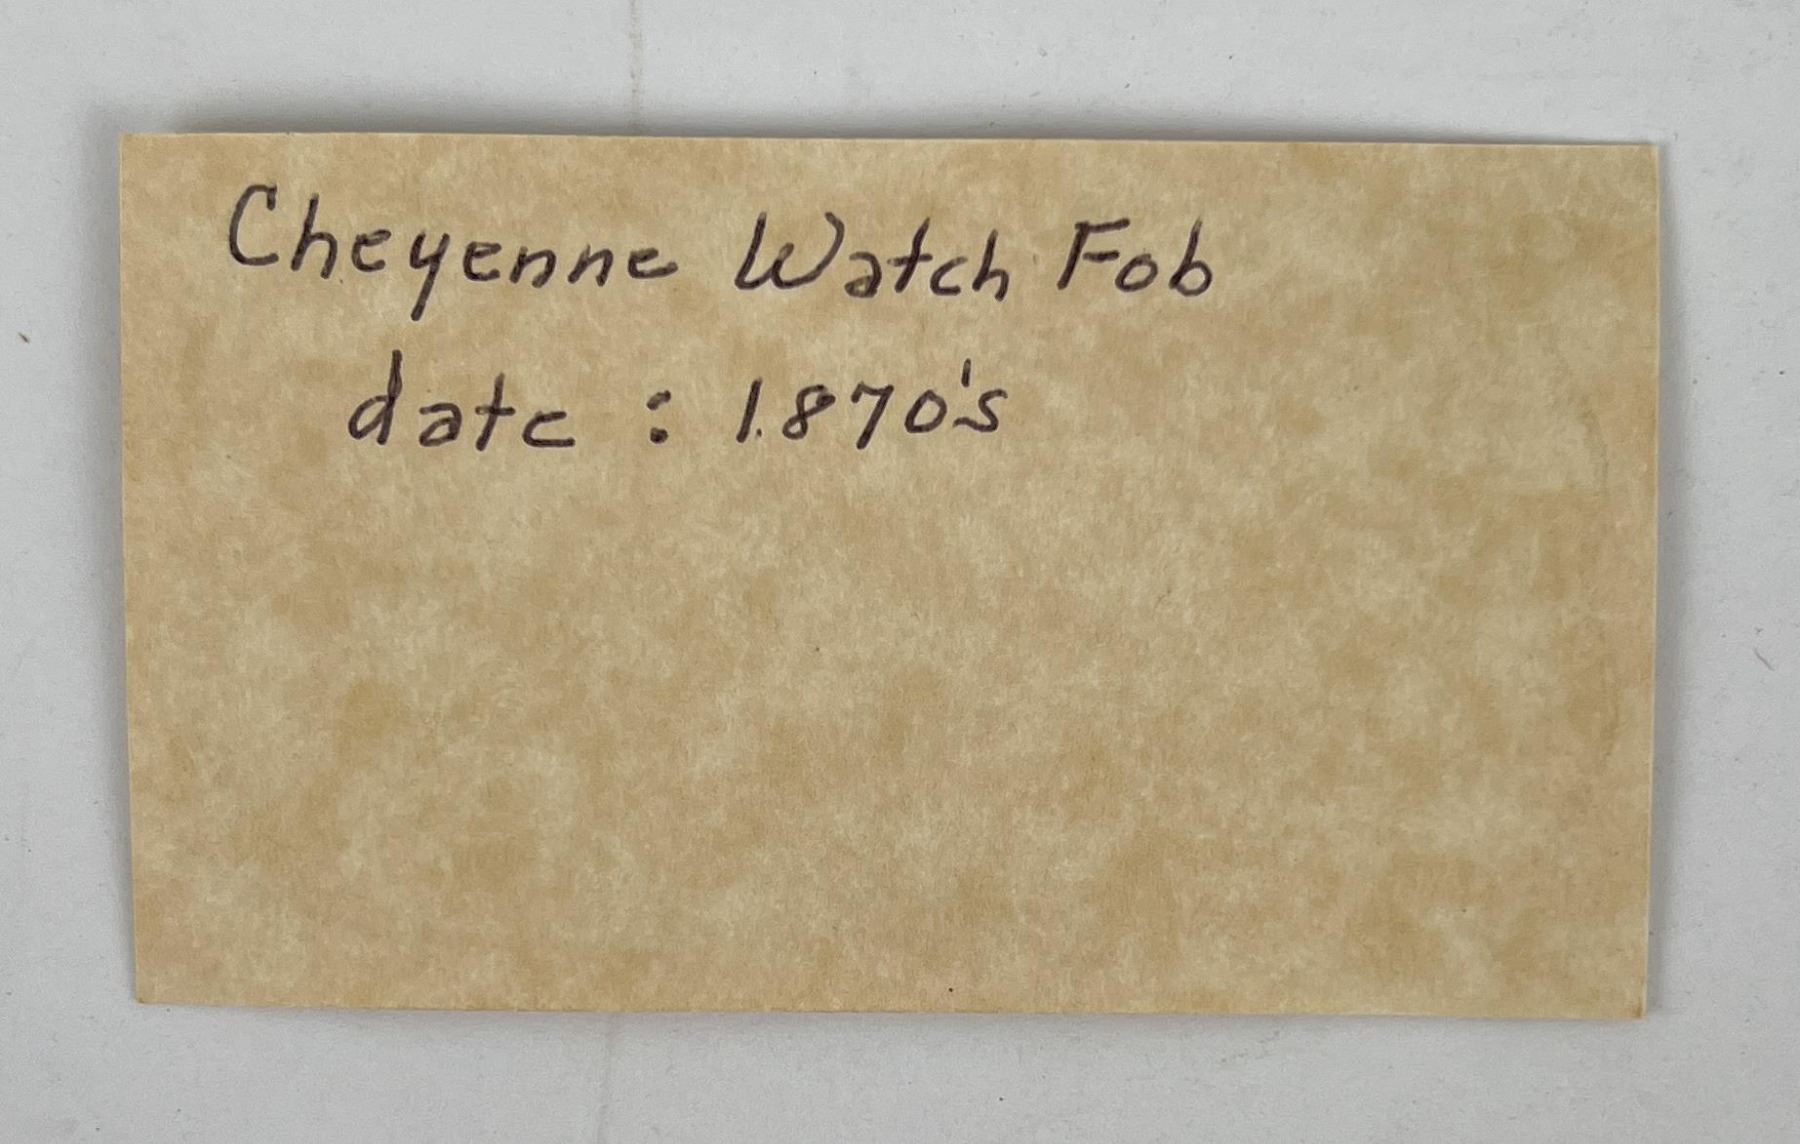 Cheyenne Watch Fob
date : 1870's